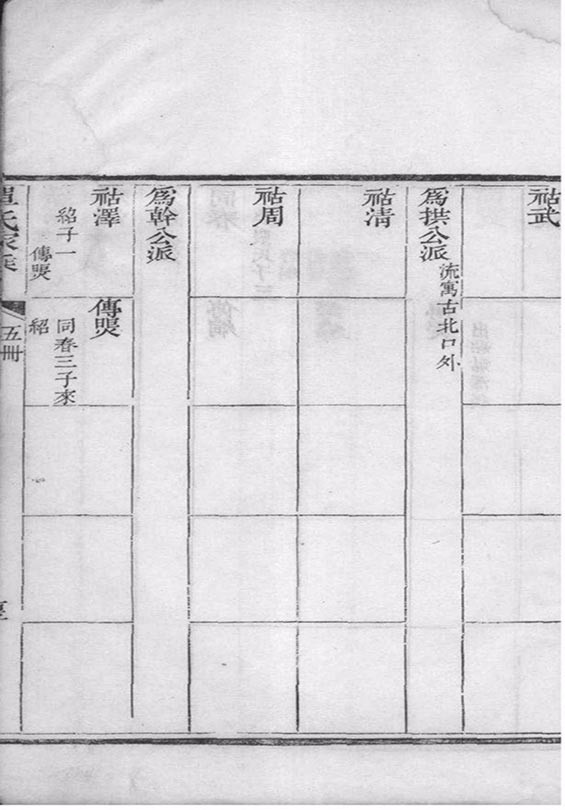 祜武
爲拱公派 流寓古北口外
祜清
祜周
爲幹公派
祜澤
紹子一
傳煚
傳煚
同春三子來
紹
氏家乘
五冊